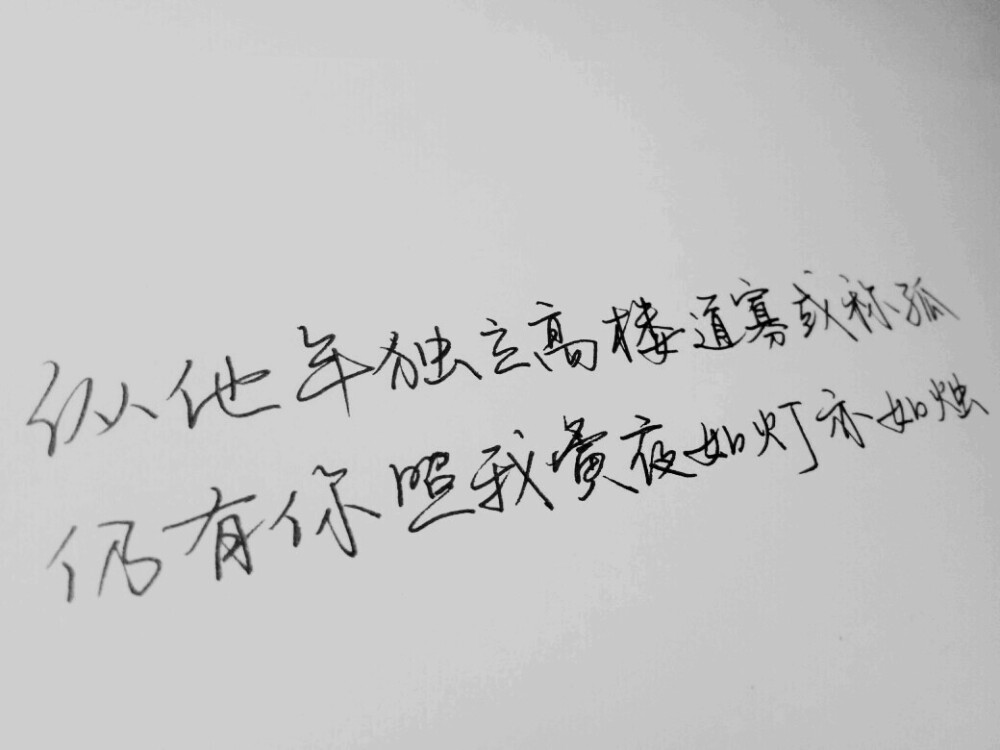 纵他年独立高楼道寡或称孤
仍有你照我黄夜如灯亦如烛